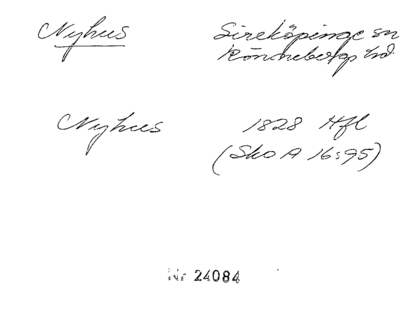 Nyhus Sireköpinge sn
Rönnebergs hd.
Nyhus 1828 Hfl
(Sko A 16:95)
Nr 24084